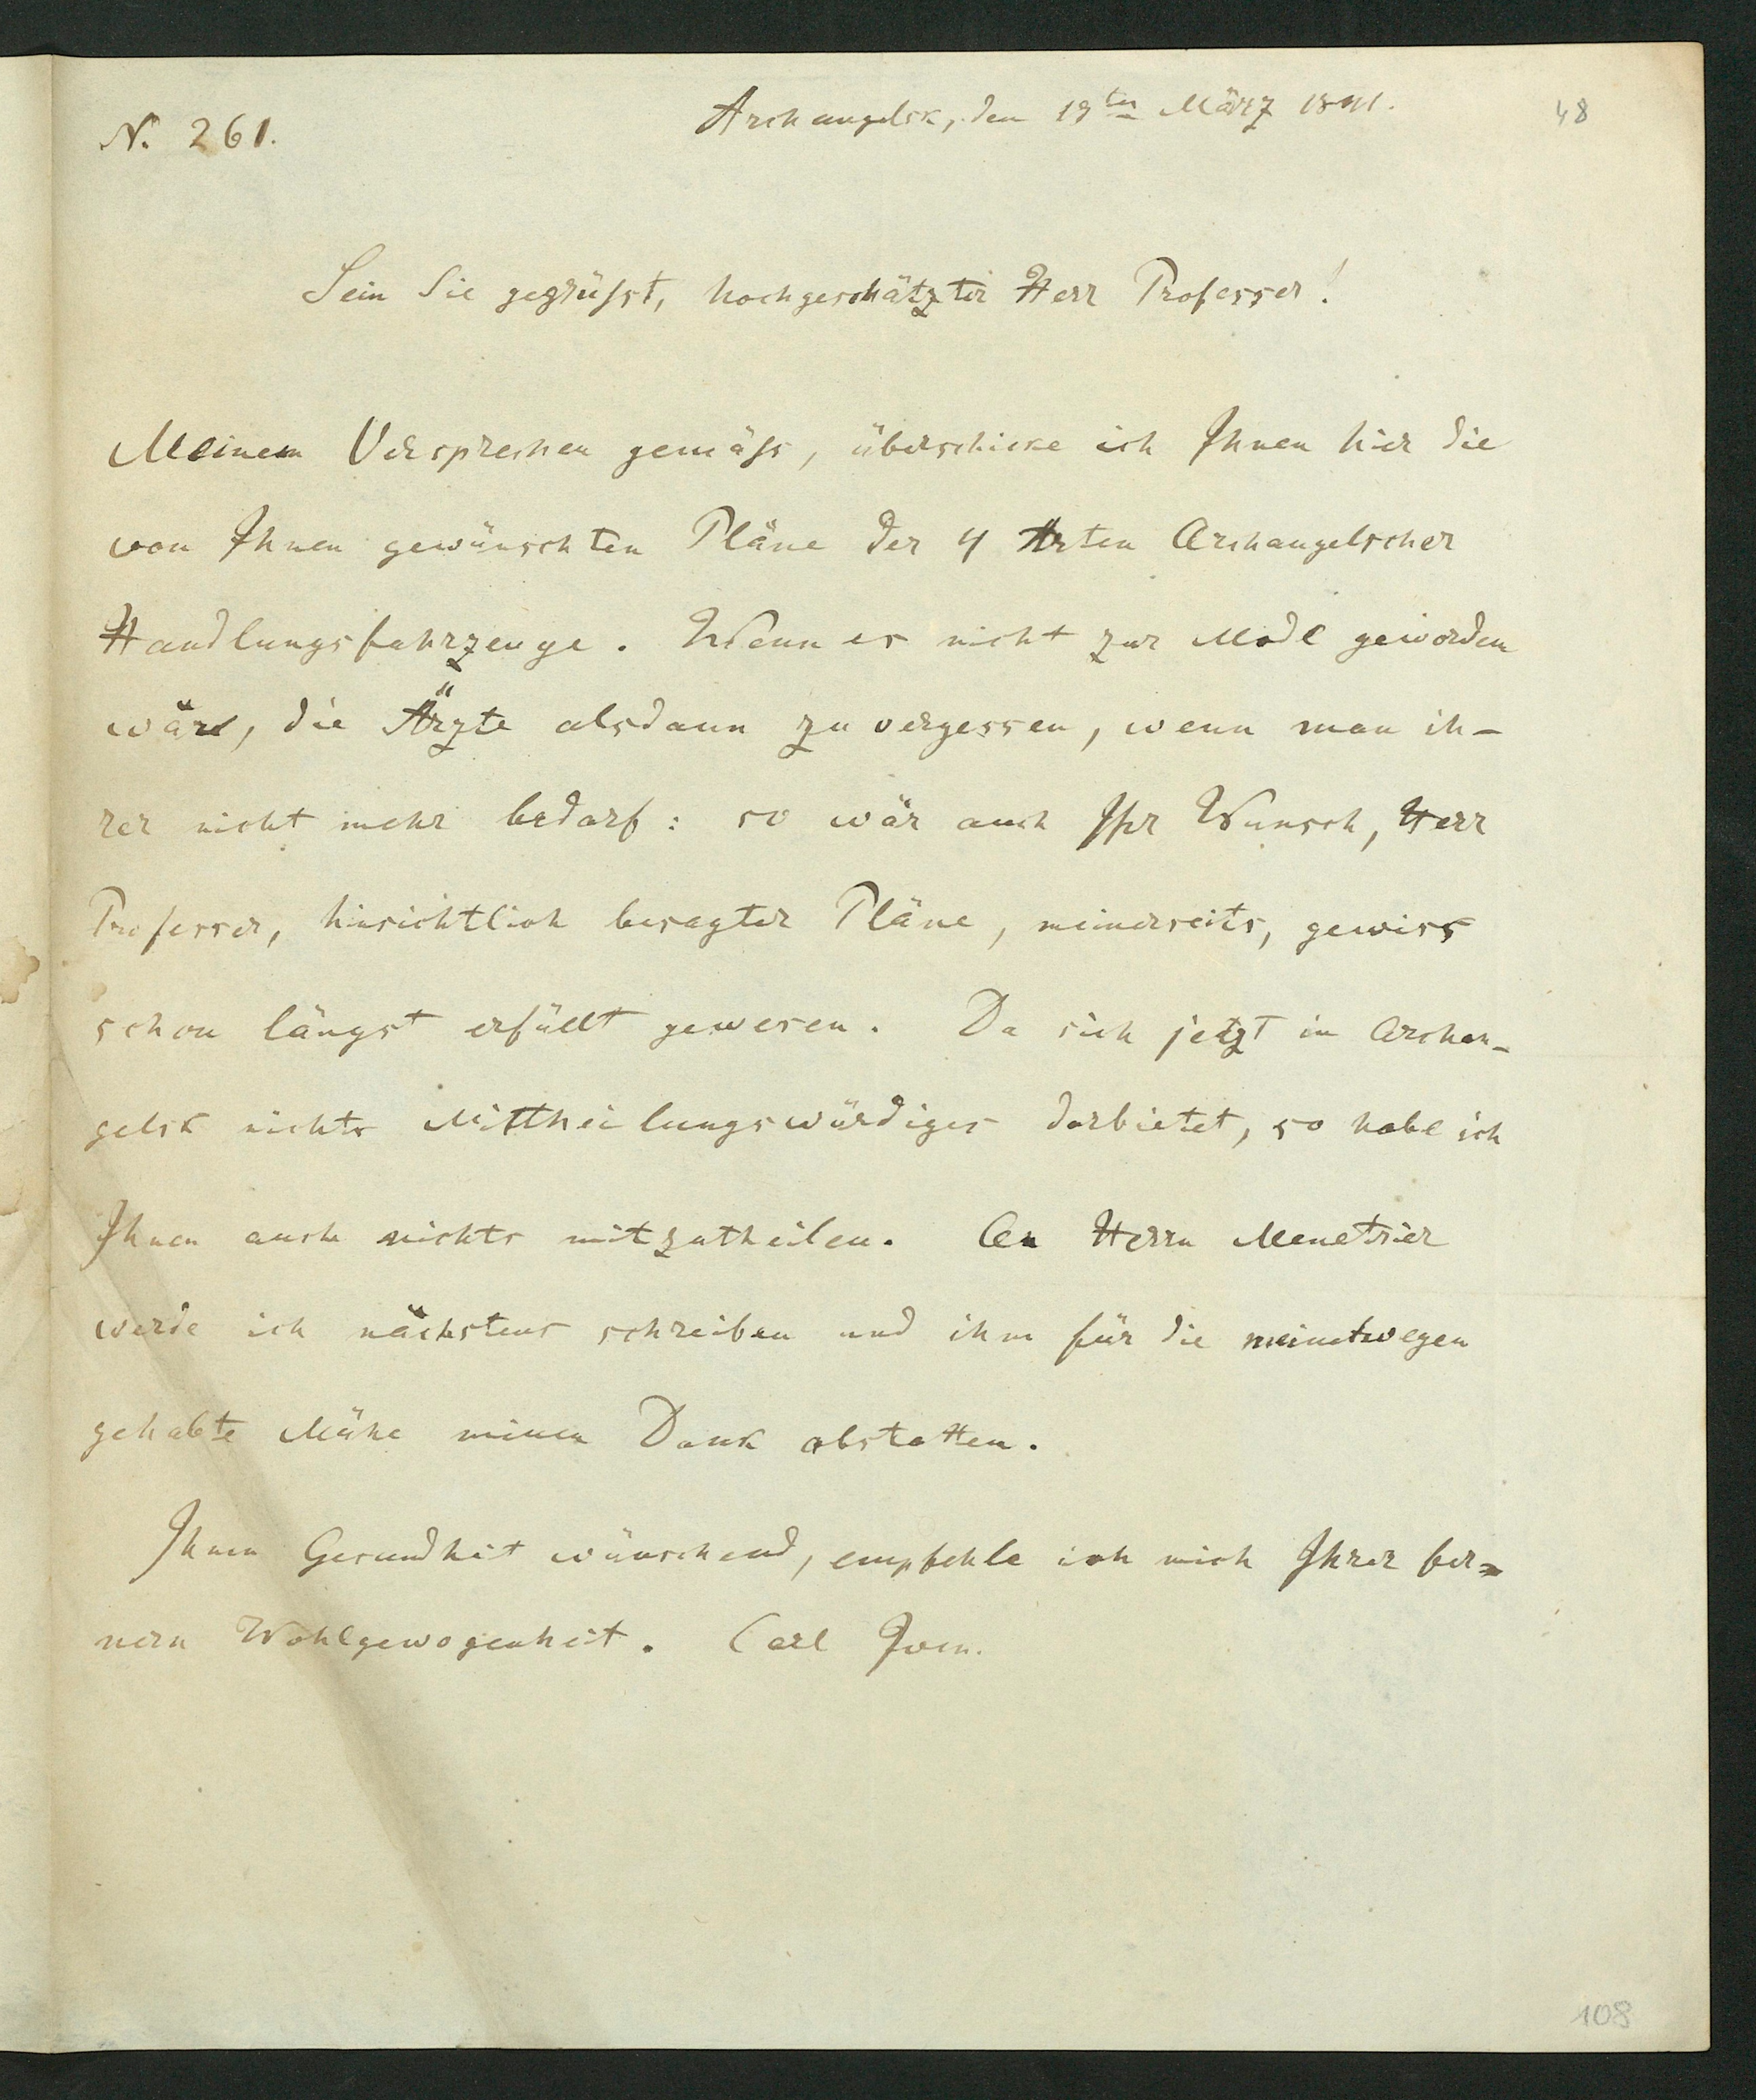 N. 261.
Archangelsk, den 19ten März 1841.
48
Sein Sie gegrüßt, hochgeschätzter Herr Professor!
Meinem Versprechen gemäß, überschicke ich Ihnen hier die
von Ihnen gewünschten Pläne der 4 Arten Archangelscher
Handlungsfahrzeuge. Wenn es nicht zur Mode geworden
wäre, die Ärzte alsdann zu vergessen, wenn man ih-
rer nicht mehr bedarf: so wär auch Ihr Wunsch, Herr
Professor, hinsichtlich besagter Pläne, meinerseits, gewiss
schon längst erfüllt gewesen. Da sich jetzt in Archan-
gelsk nichts Mittheilungswürdiges darbietet, so habe ich
Ihnen auch nichts mitzutheilen. An Herrn Menetrier
werde ich nächstens schreiben und ihm für die meinetwegen
gehabte Mühe meinen Dank abstatten.
Ihnen Gesundheit wünschend, empfehle ich mich Ihrer fer=
nern Wohlgewogenheit. Carl
108